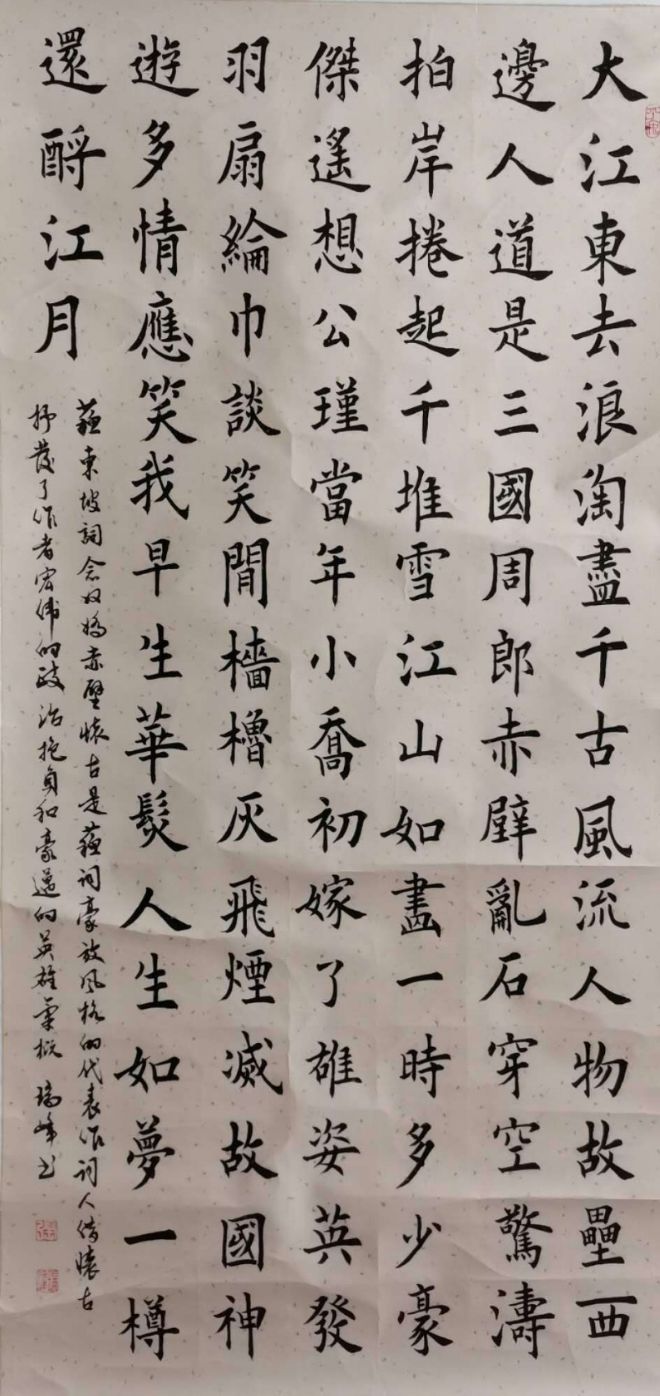 大江東去浪淘盡千古風流人物故壘西
邊人道是三國周郎赤壁亂石穿空驚濤
拍岸捲起千堆雪江山如畫一時多少豪
傑遙想公瑾當年小喬初嫁了雄姿英發
羽扇綸巾談笑間檣櫓灰飛煙滅故國神
遊多情應笑我早生華髮人生如夢一樽
還酹江月
蘇東坡詞念奴嬌赤壁懷古是蘇詞豪放風格的代表作詞人借懷古
抒發了作者宏偉的政治抱負和豪邁的英雄氣概 瑞峰书